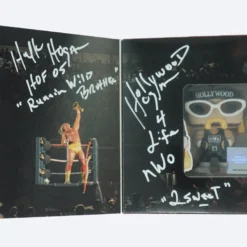 Hulk Hogan
HOF 05
"Runnin Wild
Brother"
Hollywood
Hogan
4
Life
nWo
"2 sweet"
HOLLYWOOD